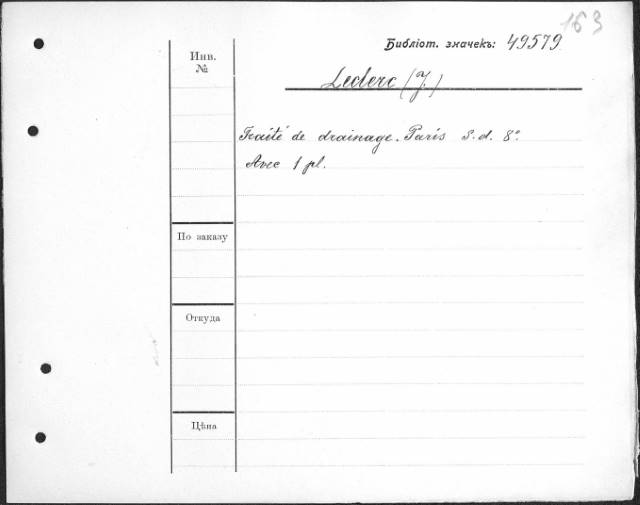 163
Библіот. значекъ: 49579
Инв.
№
Leclerc (J.)
Traité de drainage. Paris S. d. 8°.
Avec 1 pl.
По заказу
Откуда
Цѣна